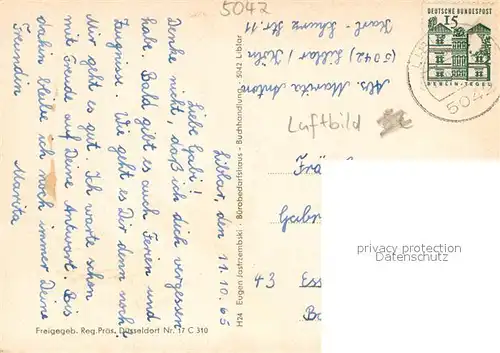 5042
Liblar, den 11.10.65
Liebe Gabi!
Denke nicht, daß ich dich vergessen
habe. Bald gibt es auch Ferien und
Zeugnisse. Wie geht es Dir denn noch?
Mir geht es gut. Ich warte schon
mit Freude auf Deine Antwort. Bis
dahin bleibe ich noch immer Deine
Freundin
Marita
Freigegeb. Reg.Präs. Düsseldorf Nr. 17 C 310
H24 Eugen Jastrzembski · Bürobedarfshaus - Buchhandlung · 5042 Liblar
Abs. Marita Anton
(5042) Liblar / Köln
Karl-Schurz Str. 11
DEUTSCHE BUNDESPOST
15
BERLIN-TEGEL
504
Luftbild
Frä
Gabr
43 Ess
privacy protection
Datenschutz